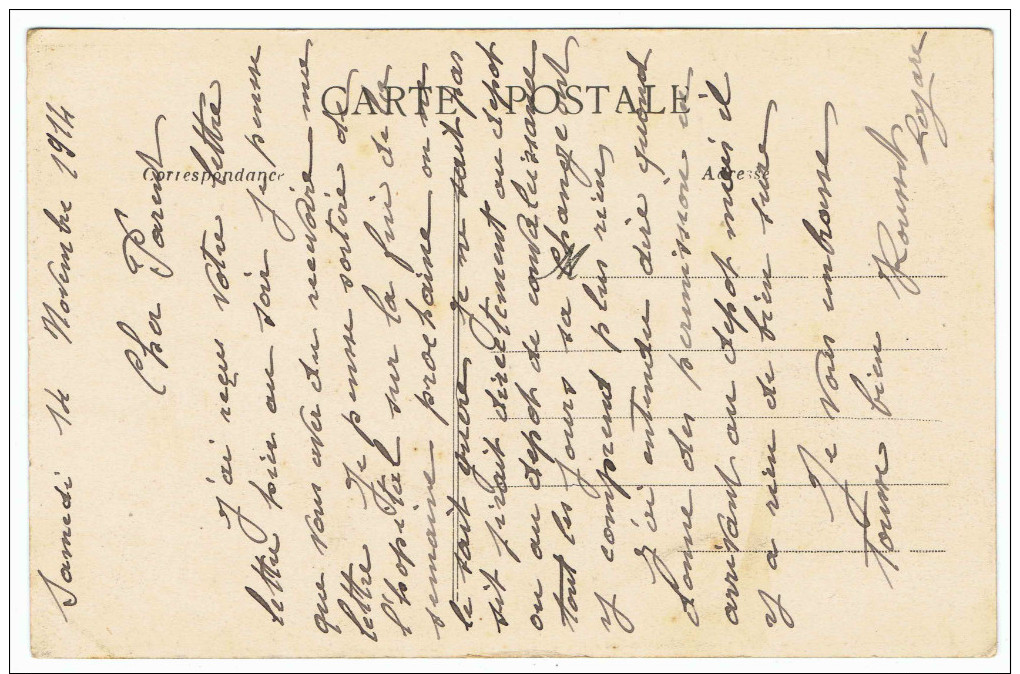 CARTE POSTALE
Correspondance
Adresse
Samedi 14 Novembre 1914
Cher Parent
J'ai reçus votre lettre
lettre hier au soir je pense
que vous avez du recevoire une
lettre Je pense sortire de
l'hopital sur la fin de la
semaine prochaine on ne
le sait guere je ne sait pas
sit jirait directement au depot
ou au depot de convalaissance
tout les jours sa change ont
y comprend plus rien
J'ai entendu dire quand
donne des permission en
arrivant au depot mais il
y a rien de bien sure
Je vous embrasse
tousse bien